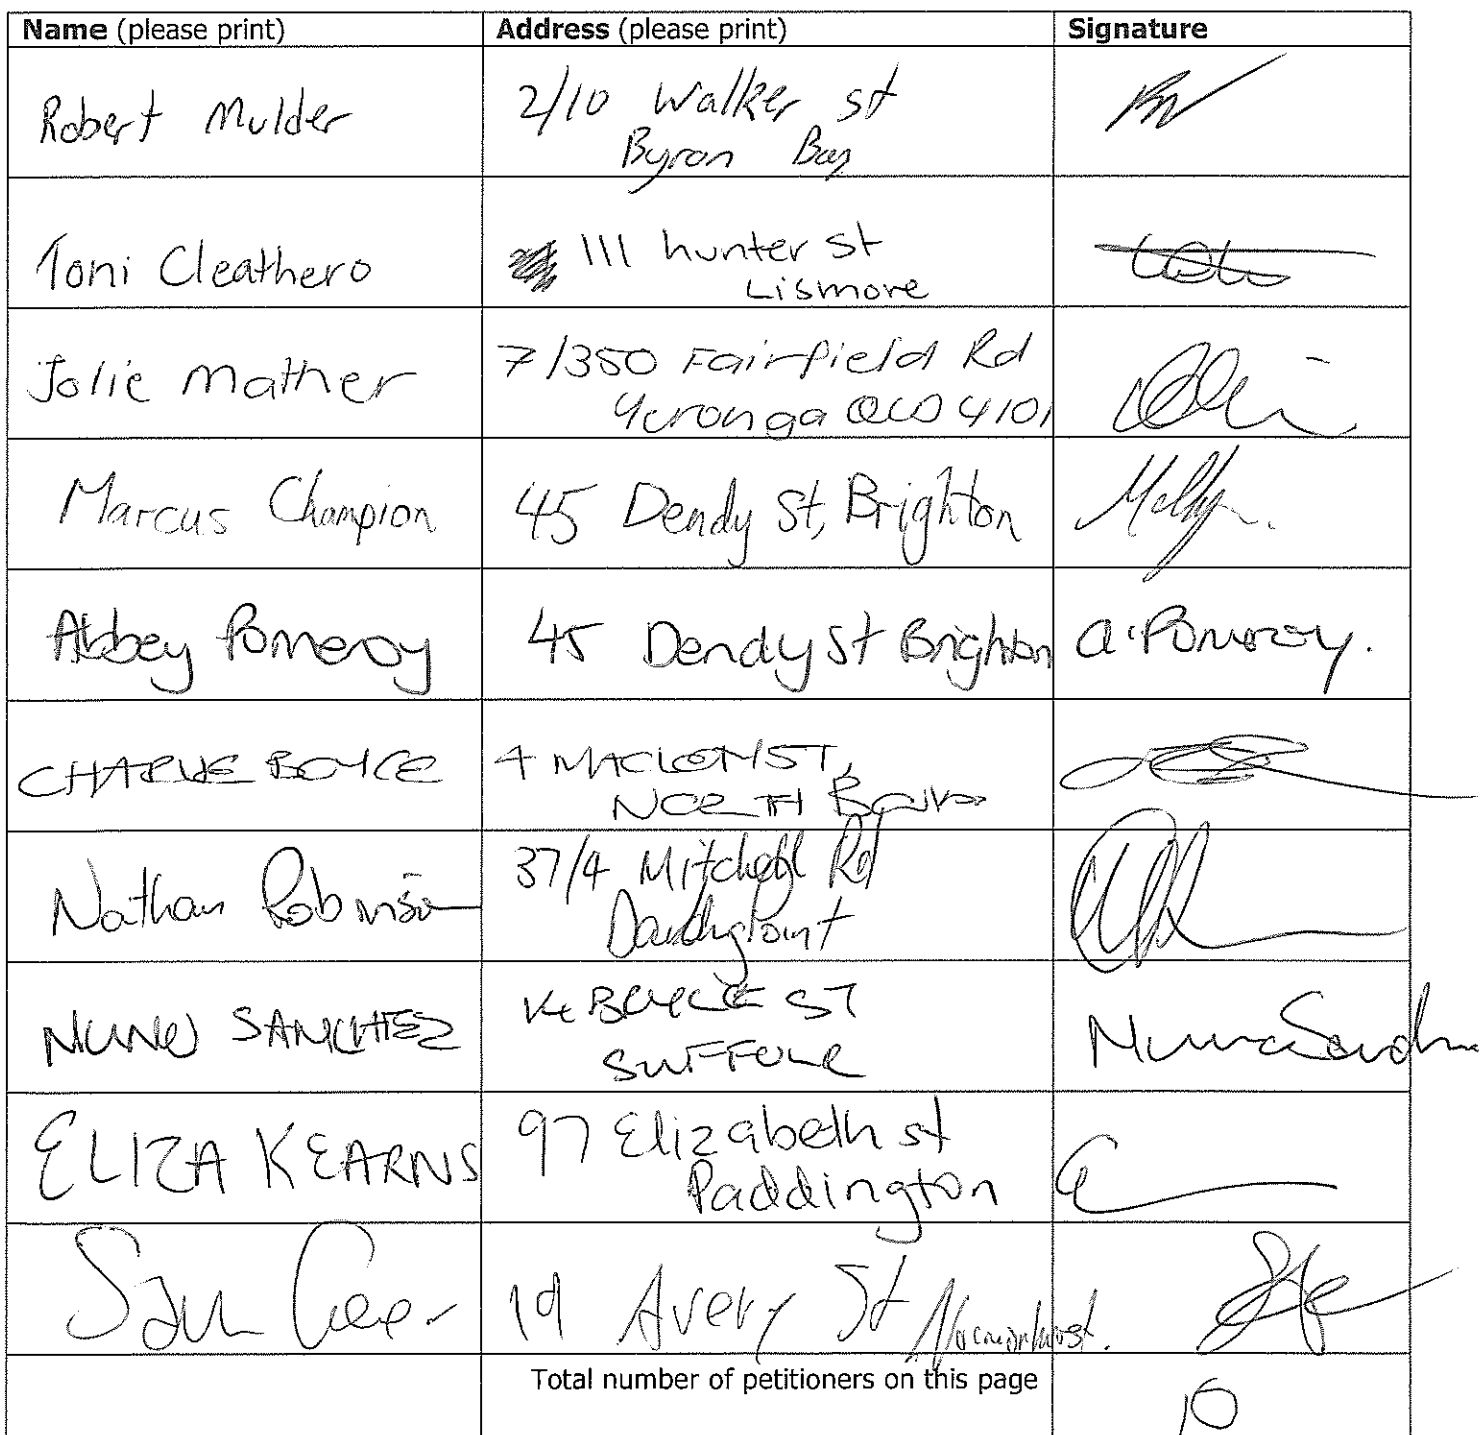 Name (please print) Address (please print) Signature
Robert Mulder 2/10 Walker st
Byron Bay
Toni Cleathero 111 hunter st
Lismore
Jolie Mather 7/350 Fairfield Rd
Yeronga QLD 4101
Marcus Champion 45 Dendy St, Brighton
Abbey Pomeroy 45 Dendy St Brighton a.Pomeroy.
CHARLIE BOYCE 4 ST,
NORTH
Nathan Robinson 37/4 Mitchell Rd
NUNO SANCHEZ ST
SUFFOLK
ELIZA KEARNS 97 Elizabeth st
Paddington
Sam 19 Avery St
Total number of petitioners on this page
10